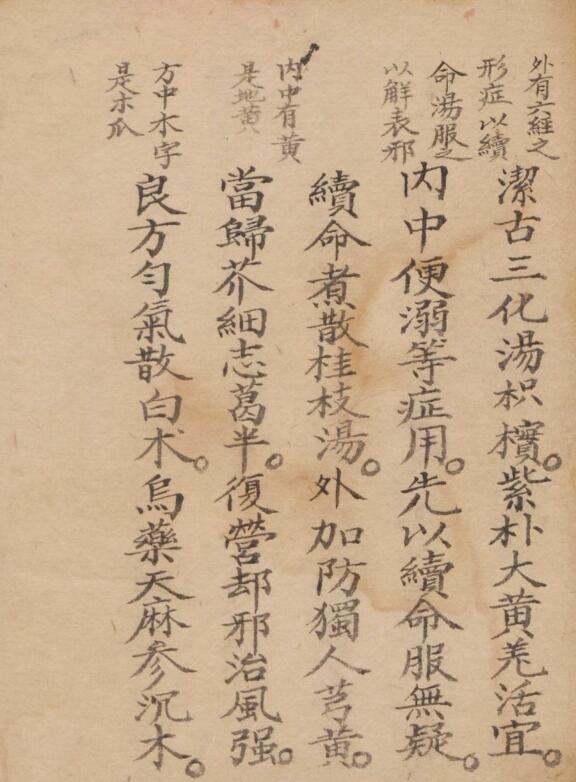 外有六經之
形症以續
命湯服之
以解表邪
潔古三化湯枳檳。紫朴大黃羌活宜。
内中便溺等症用。先以續命服無疑。
内中有黃
是地黃
續命煮散桂枝湯。外加防獨人芎黃。
當歸芥細志葛半。復營却邪治風强。
方中木字
是木瓜
良方勻氣散白术。烏藥天麻參沉木。